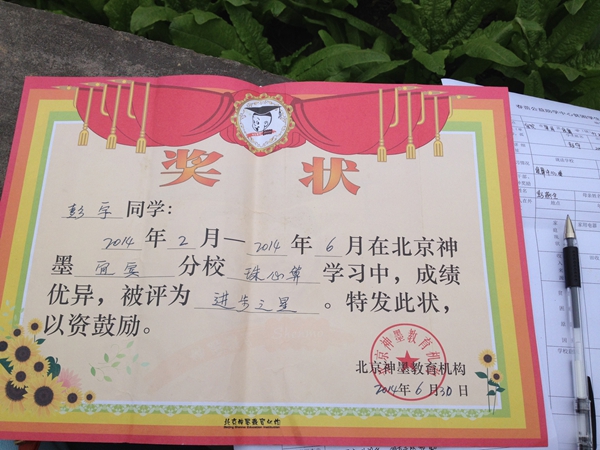 奖状
彭宇同学:
2014年2月—2014年6月在北京神
墨宜宾分校珠心算学习中,成绩
优异,被评为进步之星。特发此状,
以资鼓励。
北京神墨教育机构
北京神墨教育机构
2014年6月30日
北京神墨教育机构